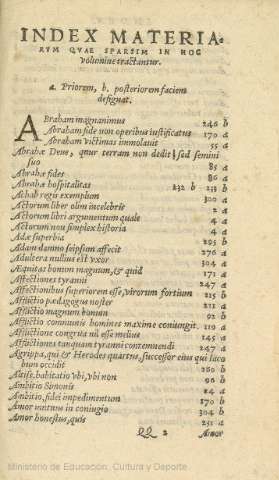 INDEX MATERIA-
RVM QVAE SPARSIM IN HOC
volumine tractantur.
a. Priorem, b. posteriorem faciem
designat.
ABraham magnanimus 246 b
Abraham fide non operibus iustificatus 170 a
Abraham victimas immolauit 55 a
Abrahæ Deus, quur terram non dedit, sed semini
suo 85 a
Abrahæ fides 86 a
Abrahæ hospitalitas 232 b 233 b
Achab regis exemplum 300 a
Actorum liber olim incelebris 2 a
Actorum libri argumentum quale 4 a
Actorum non simplex historia 4 a
Adæ superbia 295 b
Adam damno seipsum affecit 276 a
Adultera nullius est vxor 304 a
Æquitas bonum magnum, & quid 171 a
Affectiones tyranni 247 a
Affectionibus superiorem esse, virorum fortium 215 b
Afflictio pædagogus noster 211 a
Afflictio magnum bonum 92 b
Afflictio communis homines maxime coniungit. 119 a
Afflictione congrua nil esse melius 145 a
Afflictiones tanquam tyranni contemnendi 247 a
Agrippa, qui & Herodes quartus, successor eius qui Iaco
bum occidit 260 b
Altiss. habitatio vbi, vbi non 96 b
Ambitio Simonis 24 a
Ambitio, fidei impedimentum 170 b
Amor initium in coniugio 304 b
Amor honestus, quis 251 a
QQ 2 Amor
Ministerio de Educación, Cultura y Deporte